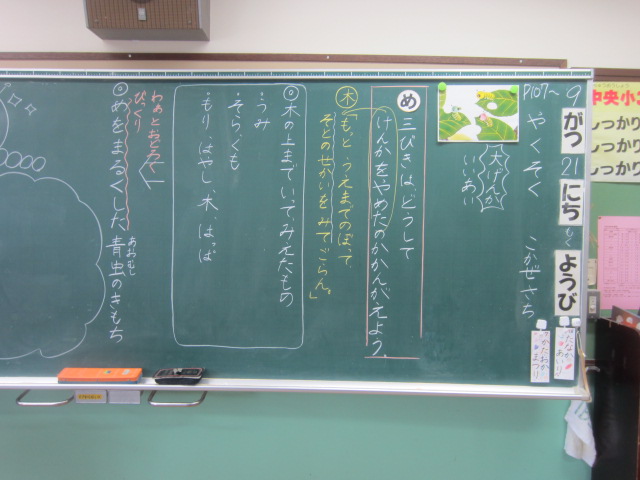 9がつ21にち もくようび
P107〜
やくそく こかぜさち
大げんか
いいあい
め 三びきは、どうして
けんかをやめたのかかんがえよう。
木「もっと、うえまでのぼって、
そとのせかいをみてごらん。」
◎木の上までいってみえたもの
・うみ
・そら、くも
・もり、はやし、木、はっぱ
わぁとおどろく
びっくり
◎めをまるくした青虫のきもち
あおむし
たなか
あいり
かたおか
まつり
中央小
しっかり
しっかり
しっかり